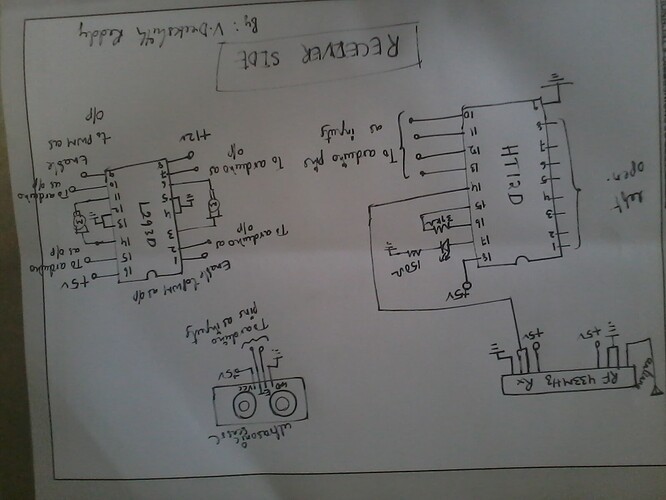 RF 433MHz
Rx
+5v
+5v
ultrasonic
+5v
Vcc
To arduino
pins as inputs
+5v
150Ω
33kΩ
left
open
HT12D
1
2
3
4
5
6
7
8
9
18
17
16
15
14
13
12
11
10
To arduino pins
as inputs
Enable to PWM as o/p
To arduino as
o/p
To arduino as
o/p
+12v
L293D
1
2
3
4
5
6
7
8
16
15
14
13
12
11
10
9
+5v
To arduino
as o/p
To arduino
as o/p
Enable
to PWM as
o/p
RECEIVER SIDE
By: V. Deekshith Reddy